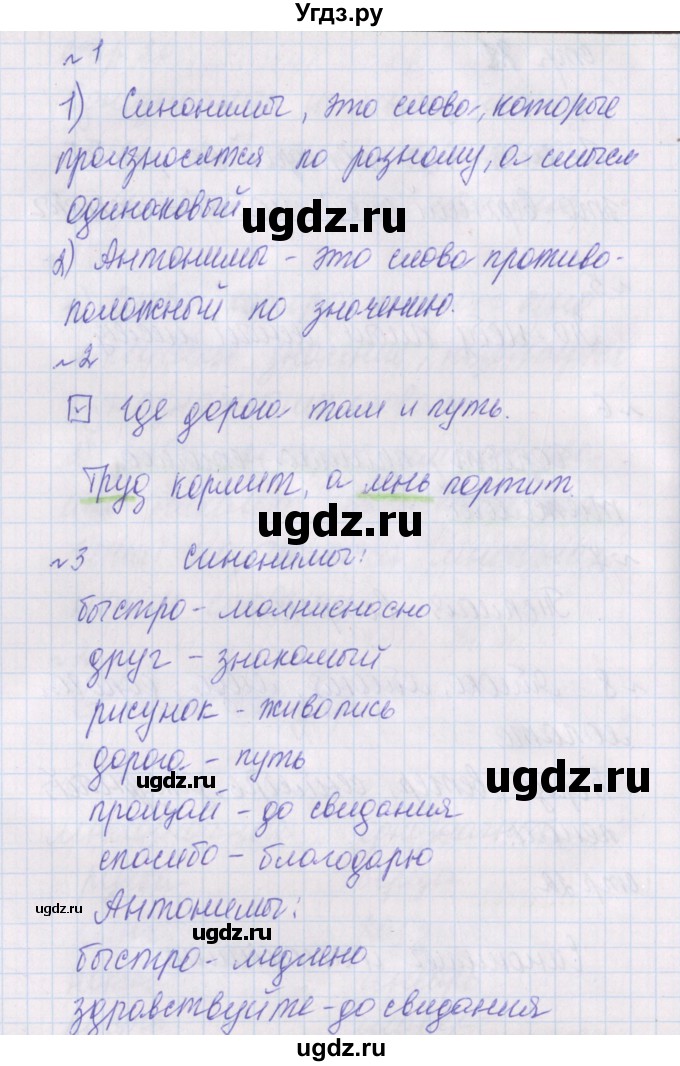 Угдз.ру
~1
1) Синонимы, это слова, которые
произносятся по разному, а смысл
одинаковый
ugdz.ru
2) Антонимы - это слова противо-
положный по значению.
~2
Где дорога там и путь.
Труд кормит, а лень портит.
ugdz.ru
~3 Синонимы:
быстро - молниеносно
друг - знакомый
рисунок - живопись
дорога - путь
ugdz.ru ugdz.ru
прощай - до свидания
спасибо - благодарю
ugdz.ru
Антонимы:
ugdz.ru
быстро - медлено
здравствуйте - до свидания
ugdz.ru